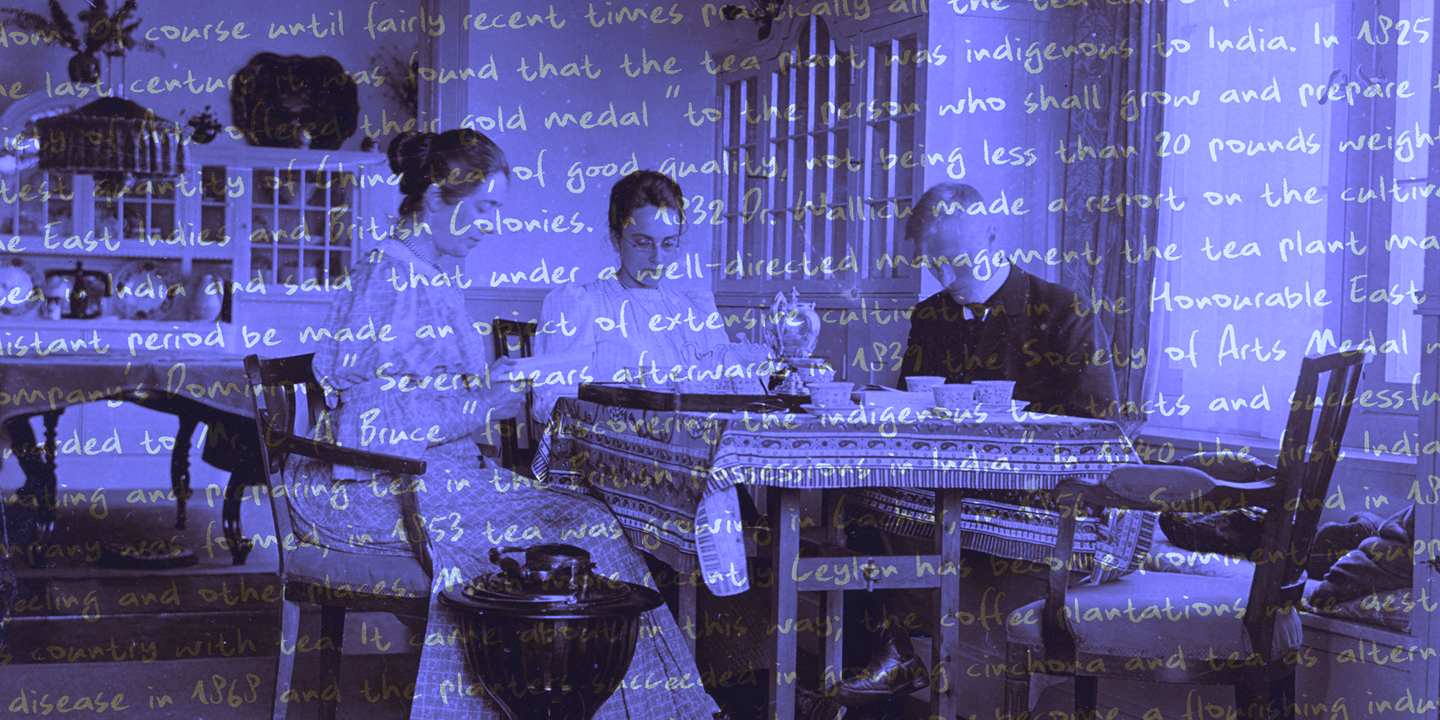 dom of course until fairly recent times practically all the tea came
he last century it was found that the tea plant was indigenous to India. In 1825
ciety of Arts offered their gold medal "to the person who shall grow and prepare t
test quantity of China tea, of good quality, not being less than 20 pounds weight
he East Indies and British Colonies. 1832 Dr. Wallich made a report on the cultiva
tea in India and said "that under a well-directed management the tea plant ma
distant period be made an object of extensive cultivation in the Honourable East
ompany's Dominions." Several years afterwards in 1839 the Society of Arts Medal w
warded to Mr. C. A. Bruce "for discovering the indigenous tea tracts and successfu
vating and preparing tea in the British possessions in India." In 1840 the first India
mpany was formed, in 1853 tea was growing in Cachar in 1856 Sylhet and in 18
eeling and other places. More recently Ceylon has become prominent in supp
s country with tea. It came about in this way; the coffee plantations were dest
disease in 1868 and the planters succeeded in growing cinchona and tea as altern
become a flourishing indu